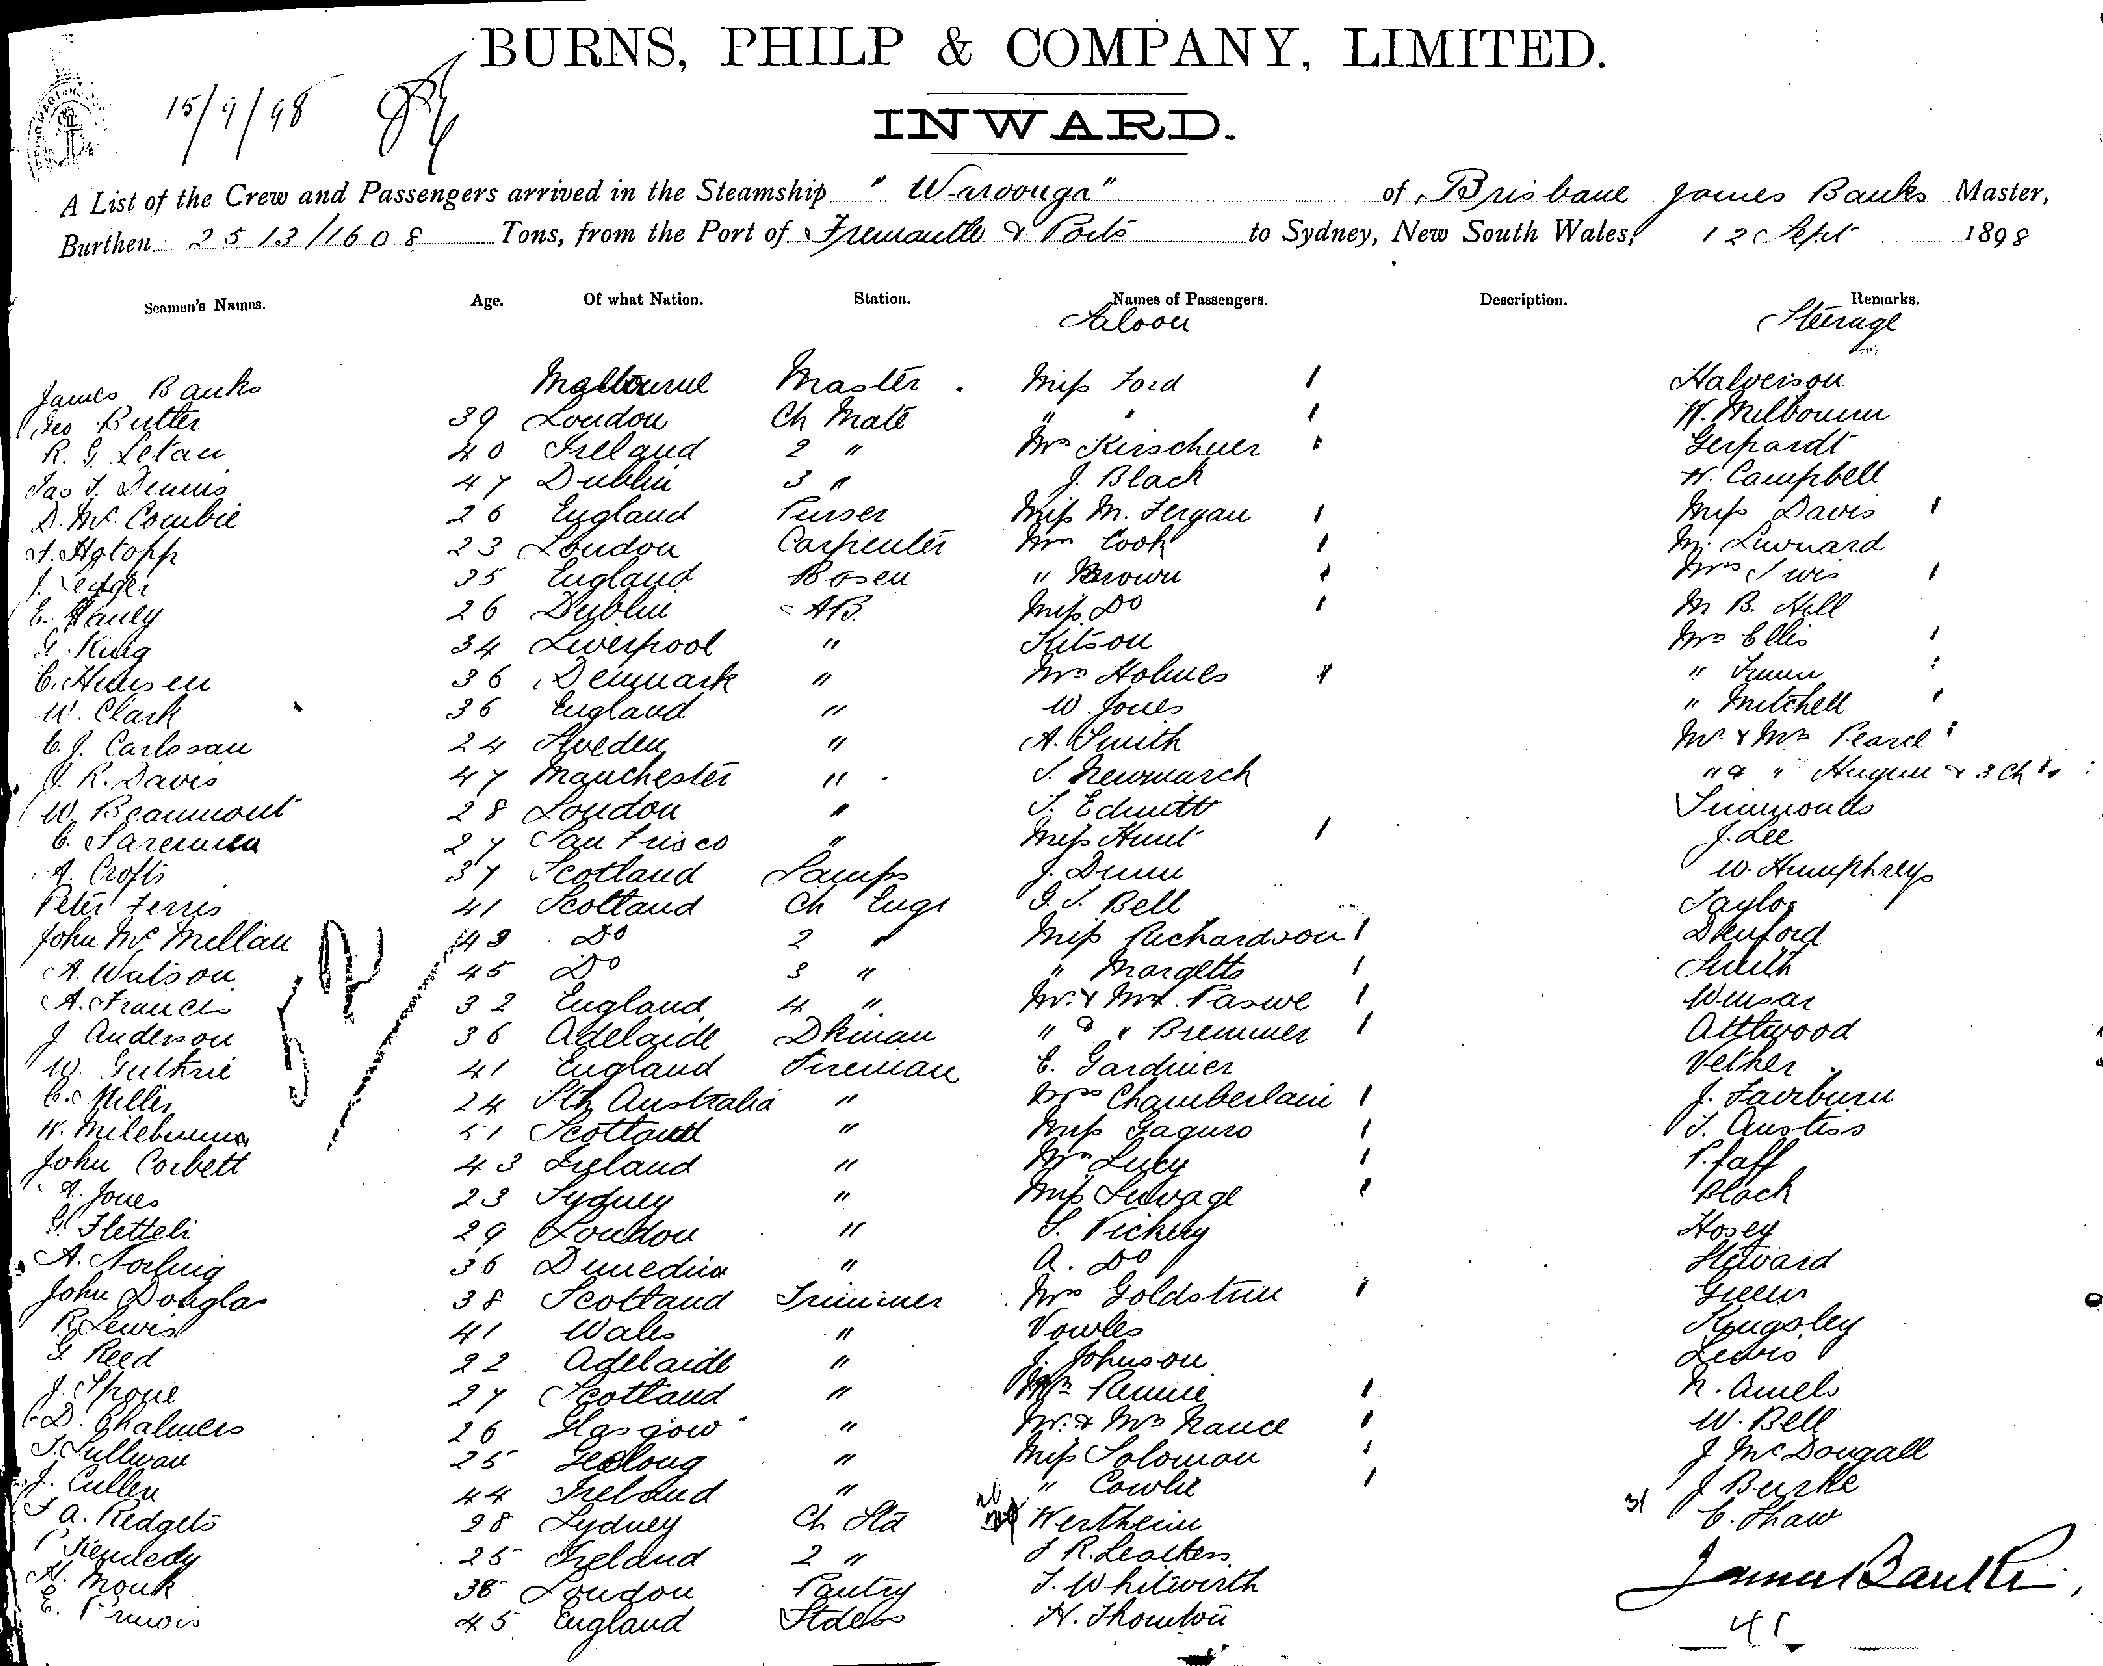 BURNS, PHILP & COMPANY, LIMITED.
15/9/98
INWARD.
A List of the Crew and Passengers arrived in the Steamship "Warooonga" of Brisbane James Banks Master,
Burthen 2513/1608 Tons, from the Port of Fremantle & Ports to Sydney, New South Wales, 12 Sept 1898
Seamen's Names. Age. Of what Nation. Station. Names of Passengers. Description. Remarks.
Saloon Steerage
James Banks Melbourne Master Miss Ford 1 Halverson
Geo Butler 39 London Ch Mate " " 1 W. Milbourn
R. G. Letau 40 Ireland 2 " Mrs Kirschner 1 Gerhardt
Jas T. Dennis 47 Dublin 3 " J. Black W. Campbell
D. Mc Combie 26 England Purser Miss M. Fergau 1 Miss Davis 1
Hotopp 23 London Carpenter Mrs Cook 1 M.
J. Ledger 35 England Bosen " Brown 1 Mrs 1
E. Haney 26 Dublin AB. Miss Do 1 M B. Hill
G. King 34 Liverpool " Kitson Mrs Ellis 1
C. Hansen 36 Denmark " Mrs Holmes 1 "
W. Clark 36 England " W Jones " Mitchell 1
C. J. Carlssan 24 Sweden " A. Smith Mr & Mrs Pearce 1
J. R. Davis 47 Manchester " S. Newmarch " & " & 3 Ch
W. Beaumont 28 London " Simmonds
C. 27 San Frisco " Miss Hunt 1 J. Lee
A. Crofts 37 Scotland Lamps J. Dunn W. Humphreys
Peter Ferris 41 Scotland Ch Engr G. S. Bell Taylor
John Mc Millan 43 Do 2 " Miss Richardson 1 Denford
A. Watson 45 Do 3 " " Margetts 1 Smith
A. Francis 32 England 4 " Mr & Mrs Pascoe 1 Winsar
J Anderson 36 Adelaide Dkman " & " Bremmer 1 Attwood
W. Guthrie 41 England Fireman C. Gardiner Vether
C. Miller 24 Sth Australia " Mrs Chamberlain 1 J. Fairburn
W. 51 Scotland " Miss 1 T. Anstiss
John Corbett 43 Ireland " Mrs Lucy 1 Pfaff
A. Jones 23 Sydney " Miss 1 Black
G. Fletteli 29 London " S. Vickery Hosey
A. Norling 36 Dunedin " A. Do Steward
John Douglas 38 Scotland Trimmer Mrs Goldstein 1 Green
R Lewis 41 Wales " Vowles Kingsley
G Reed 22 Adelaide " J. Johnson Lewis
J. 27 Scotland " Mrs Rennie 1 N. Amels
D. Chalmers 26 Glasgow " Mr. & Mrs Nance 1 W. Bell
T. Sullivan 25 Geelong " Miss Solomon 1 J McDougall
J. Cullen 44 Ireland " " Cowlie 1 J Burke
A. Redgets 28 Sydney Ch Std Wertheim 31 C. Shaw
P. Kennedy 25 Ireland 2 " J R. Leathers
H. Monk 38 London Pantry T. Whitworth James Banks
E. 45 England Stdess H. Thornton
41